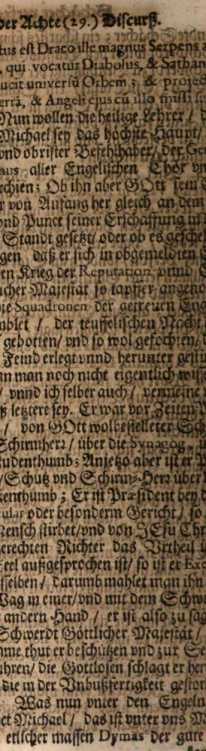 der Achte (29.) Discurß.
tus est Draco ille magnus Serpens a
, qui vocatur Diabolus, & Sathan
ucit universũ Orbem; & project
errã, & Angeli ejus cũ illo missi su
Nun wollen die heilige Lehrer / d
Michael sey das höchste Haupt /
vnd obrister Befehlhaber / der Ge
aus aller Engelischen Chör vn
rchien; Ob ihn aber GOtt sein d
r von Anfang her gleich an dem
vnd Punct seiner Erschaffung in
Standt gesetzt / oder ob es gesche
gen / daß er sich in obgemeldten
en Krieg der Reputation vnnd
icher Majestät so tapffer angeno
ie Squadronen der getreuen Eng
mblet / der teufflischen Macht
gebotten / vnd so wol gefochten /
Feind erlegt vnnd herunter gestu
nn man noch nicht eigentlich wiss
/ vnnd ich selber auch / vermeine
ß letztere sey. Er war vor Zeiten
/ von GOtt wolbestellter Sch
Schirmherr / über die Synagog
udenthumb; Anjetzo aber ist er P
/ Schutz vnd Schirms-Herr über
kenthumb; Er ist Præsident bey d
cular oder besonderm Gericht / so
ensch stirbet / vnd von JEsu Chr
erechten Richter das Vrtheil
eel außgesprochen ist / so ist er Exe
selben / darumb mahlet man ihn
Wag in einer / vnd mit dem Schw
andern Hand / er ist also zu sag
Schwerdt Göttlicher Majestät /
mme thut er beschützen vnd zur Se
ühren / die Gottlosen schlagt er her
die in der Vnbußfertigkeit gestor
Was nun vnter den Engeln
ct Michael / das ist vnter vns M
etlicher massen Dymas der gute